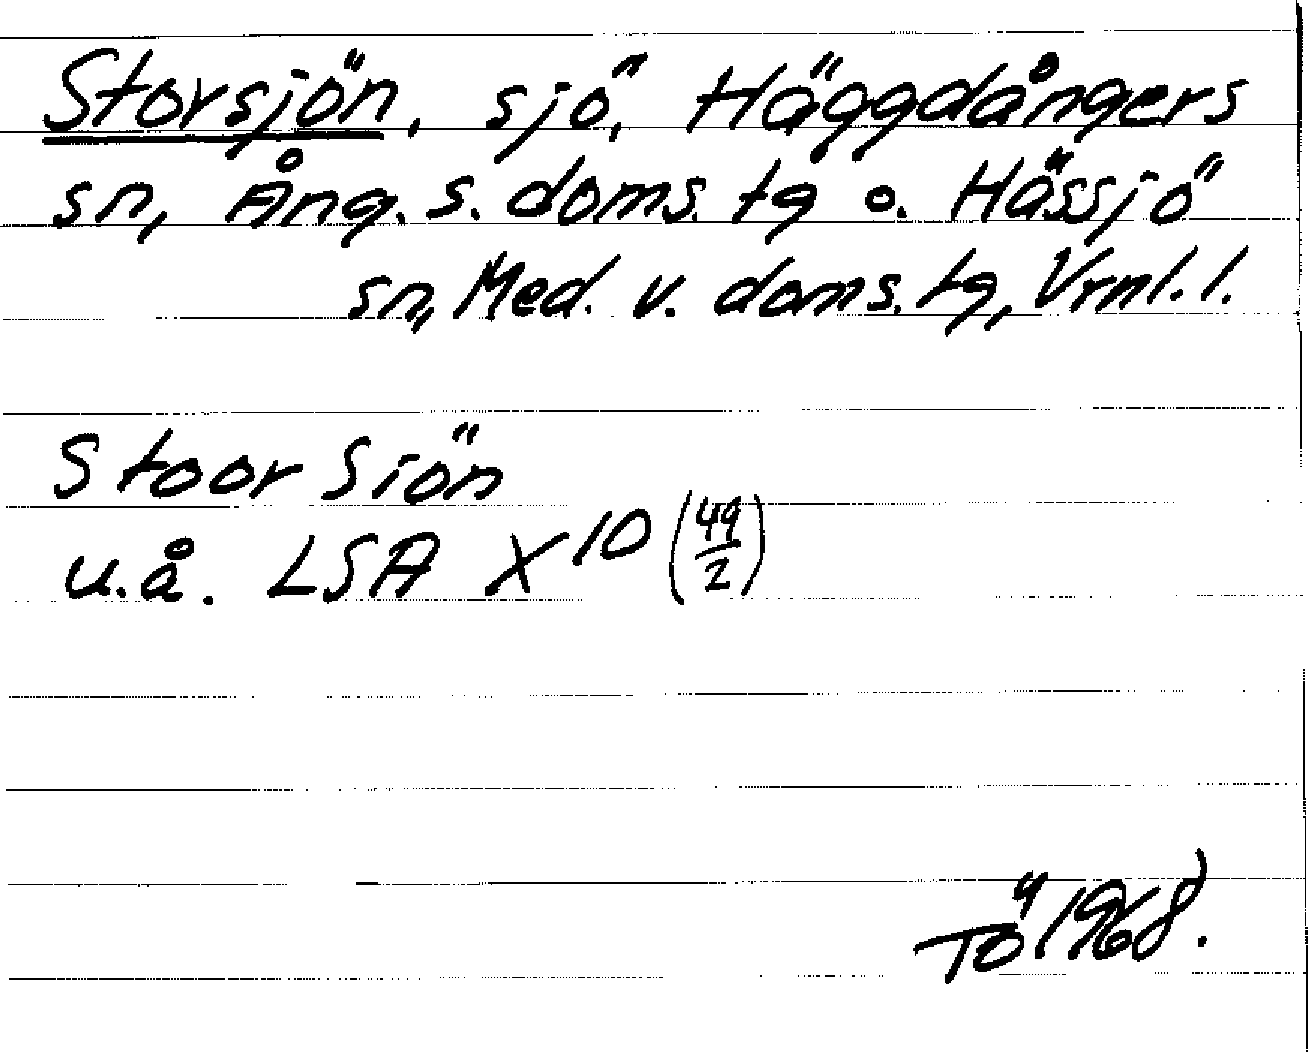 Storsjön, sjö, Häggdångers
sn, Ång. s. doms. tg o. Hässjö
sn, Med. v. doms. tg, Vrml. l.
Stoor Siön
u.å. LSA X 10 (49/2)
TÖ 1968.